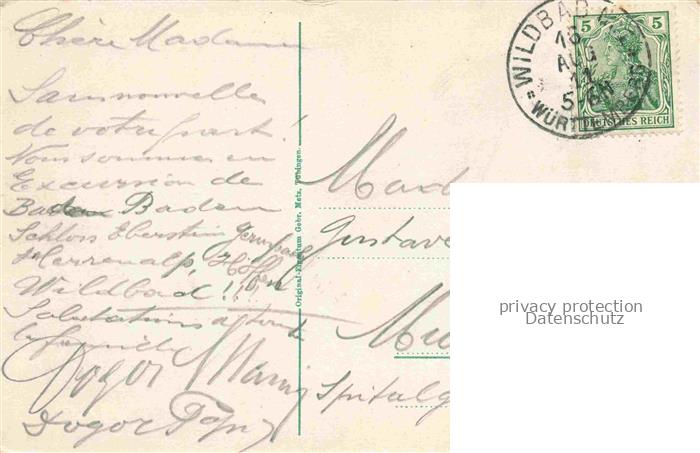 Chère Madame
Sans nouvelles
de votre part!
Nous sommes en
Excursion de
Baden Baden
Schloss Eberstein
Herrenalp, Höfen
Wildbad!!
Salutations a toute
la famille
Original-Eigentum Gebr. Metz, Tübingen.
WILDBAD
13
AUG
11
5-6N
WÜRTTEMBERG
5 5
DEUTSCHES REICH
Mad
Gustave
Mu
Spitalg
privacy protection
Datenschutz